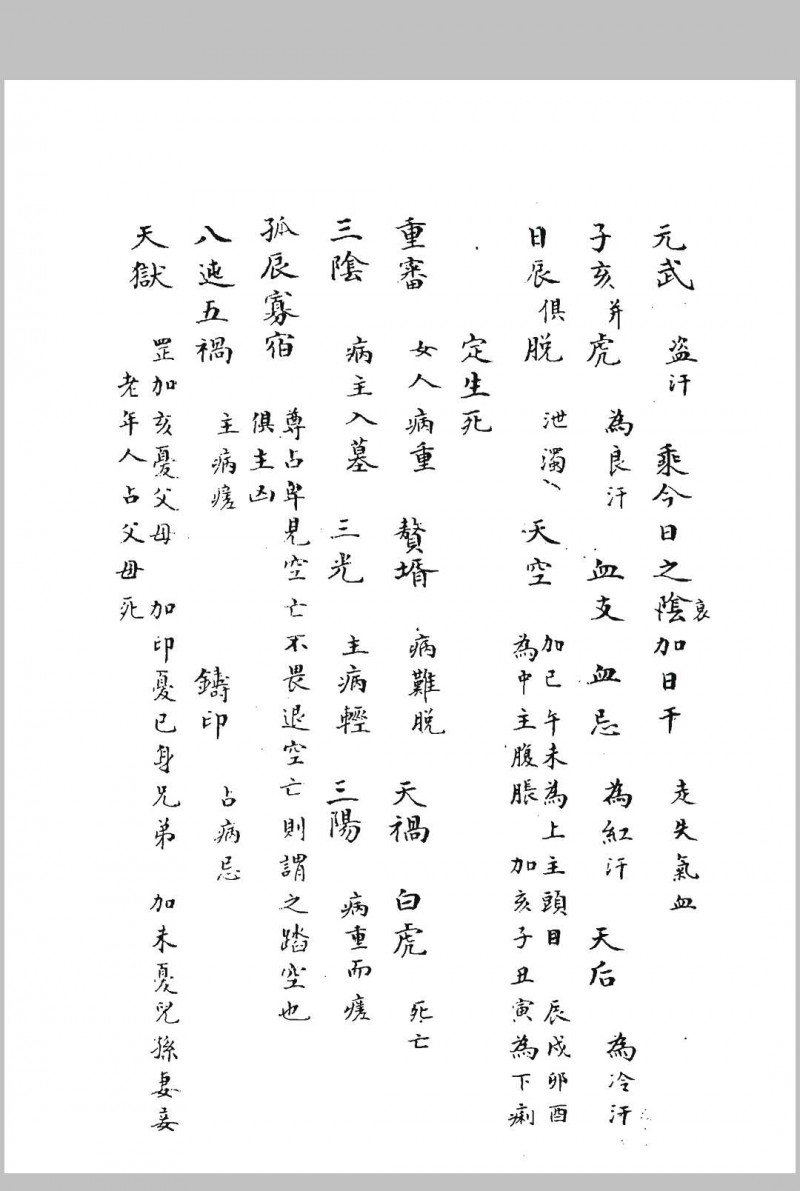 元武 盜汗 乘今日之陰加日干 走失氣血
衰
子亥并虎 為良汗 血支 血忌 為紅汗 天后 為冷汗
日辰俱脫 泄瀉 天空 加巳午未為上主頭目 辰戌卯酉
為中主腹脹 加亥子丑寅為下痢
定生死
重審 女人病重 贅壻 病難脫 天禍 白虎 死亡
三陰 病主入墓 三光 主病輕 三陽 病重而瘥
孤辰寡宿 尊占卑見空亡不畏退空亡則謂之踏空也
俱主凶
八迍五禍 主病瘥 鑄印 占病忌
天獄 罡加亥憂父母 加印憂已身兄弟 加未憂兒孫妻妾
老年人占父母死